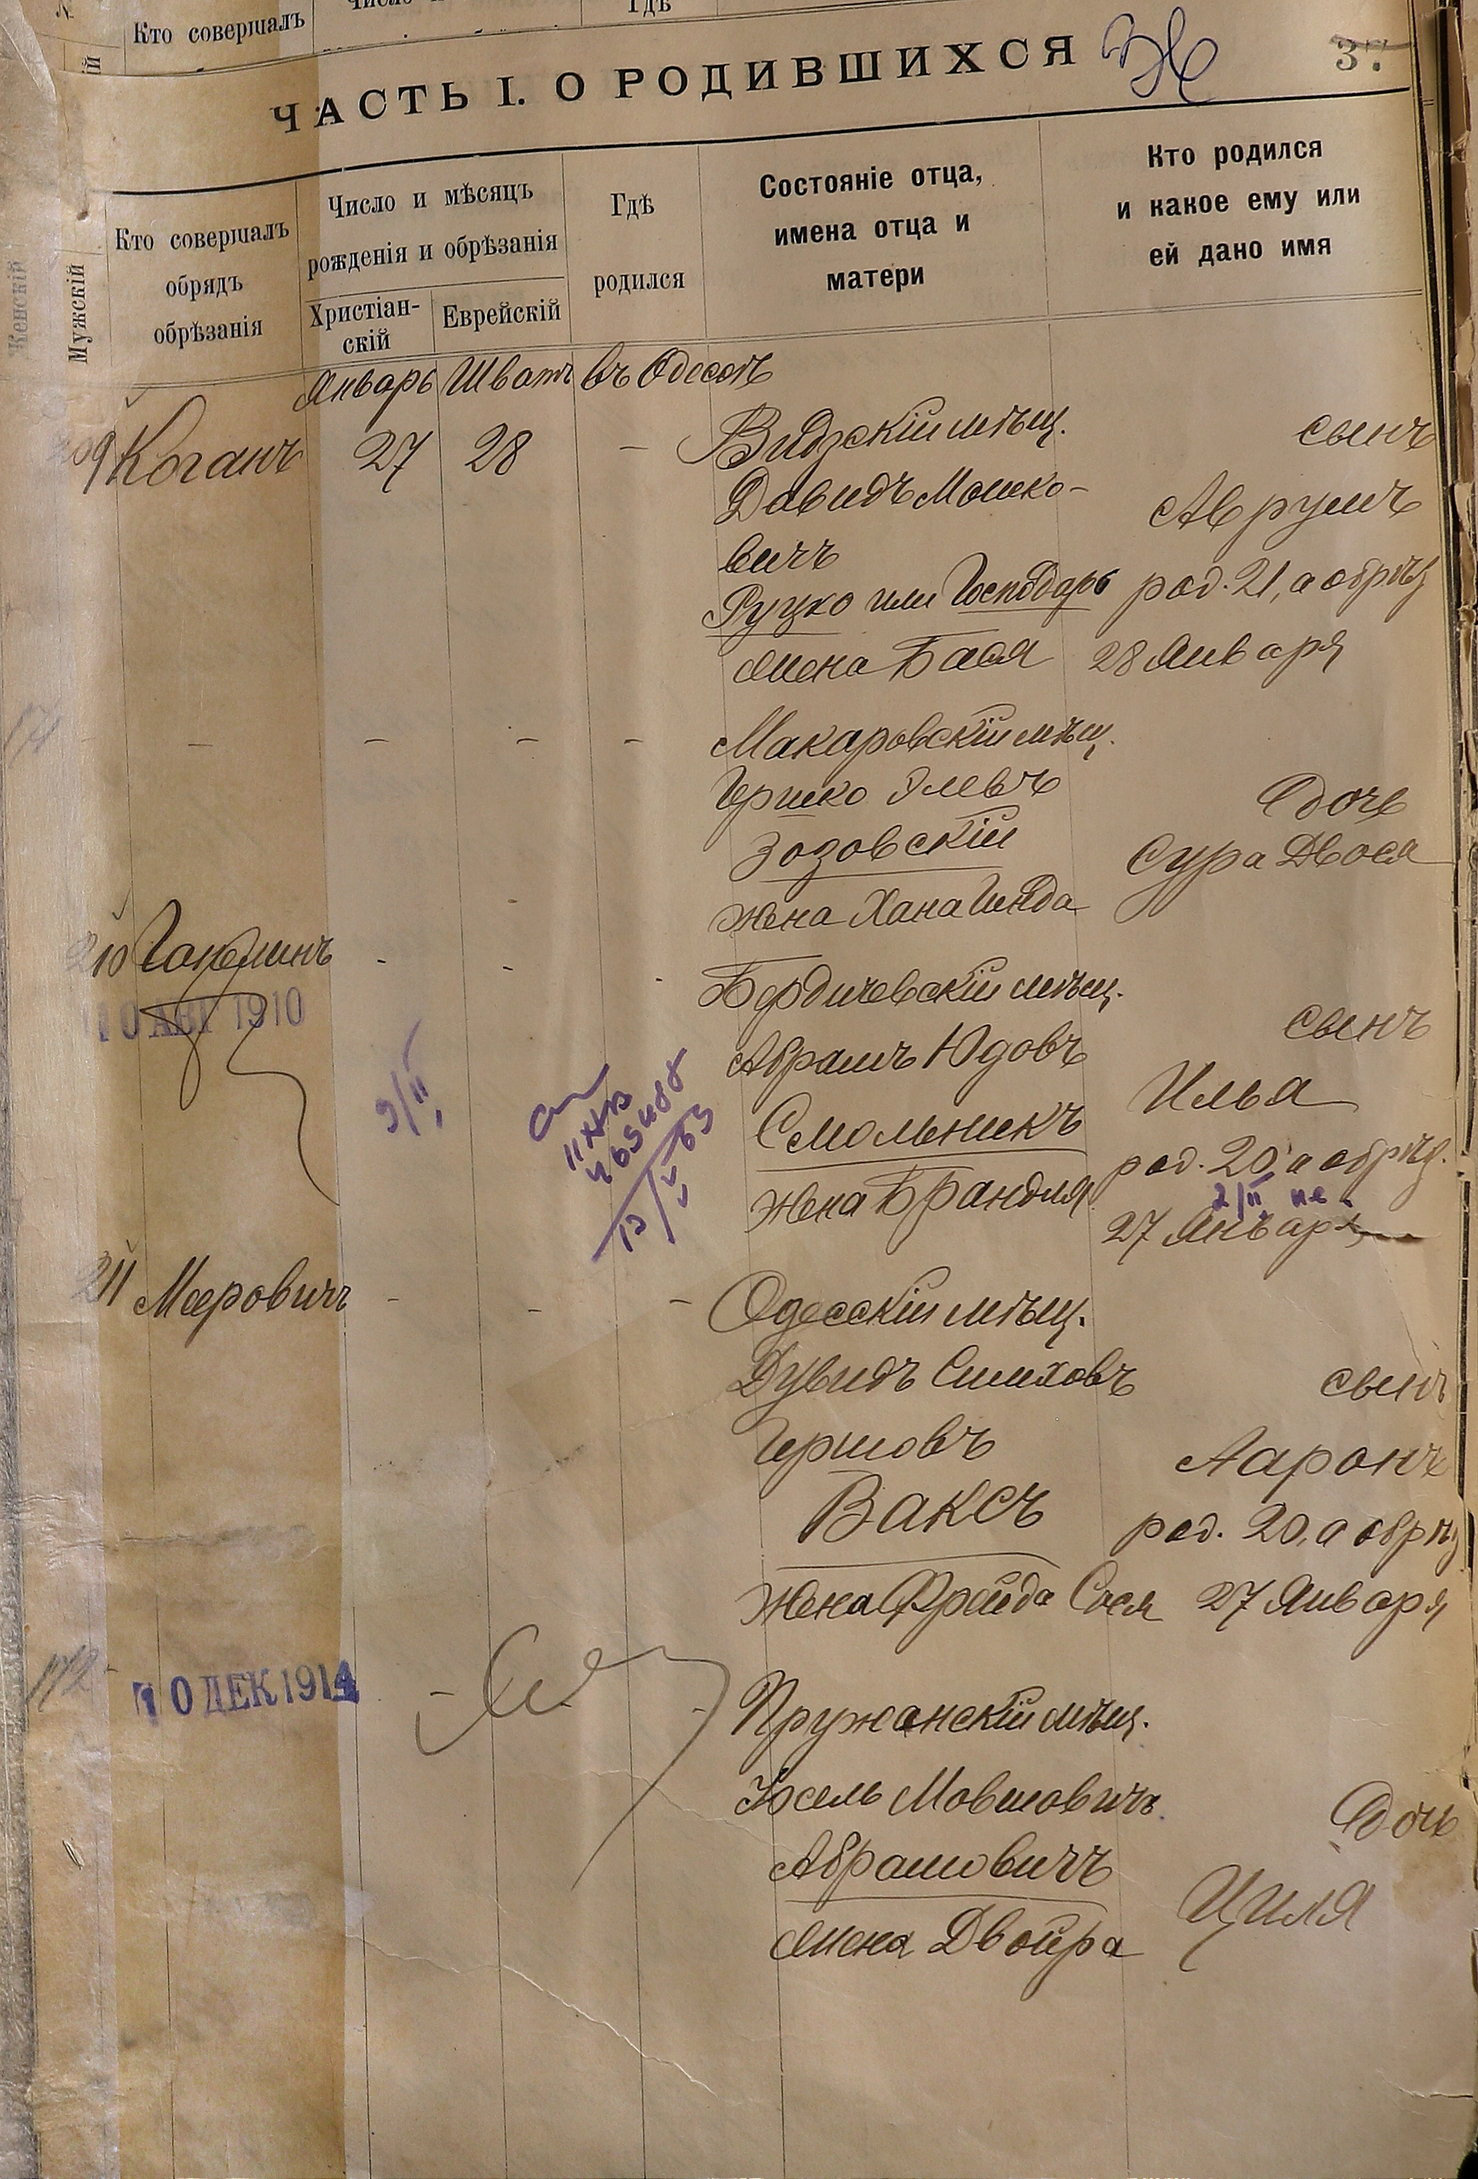 Кто совершалъ
ЧАСТЬ I. О РОДИВШИХСЯ
37
Женскій
Мужскій
Кто совершалъ
обрядъ
обрѣзанія
Число и мѣсяцъ
рожденія и обрѣзанія
Христіан-
скій
Еврейскій
Гдѣ
родился
Состояніе отца,
имена отца и
матери
Кто родился
и какое ему или
ей дано имя
Январь Шватъ въ Одессѣ
209 Коганъ 27 28 — Видзскій мѣщ. сынъ
Давидъ Мошко-
вичъ
Аврумъ
Руцко или Господарь род. 21, а обрѣз
жена Бася 28 Января
171 — — — — — Макаровскій мѣщ.
Гершко Элевъ
Дочь
Зозовскій
Сура Двося
жена Хана Гинда
210 - - - Бердичевскій мѣщ.
10 АВГ 1910
сынъ
Абрамъ Юдовъ
Илья
Смольникъ
род. 20, а обрѣз.
жена Брандля
2/II
27 Января
211 Мееровичъ - - — Одесскій мѣщ.
Дувидъ Симховъ
сынъ
Гершовъ
Ааронъ
Ваксъ
род. 20, а обрѣз
жена Фрейда Сося 27 Января
172 10 ДЕК 1914 - - - Пружанскій мѣщ.
Іосель Мовшовичъ
Дочь
Абрамовичъ
Циля
жена Двойра